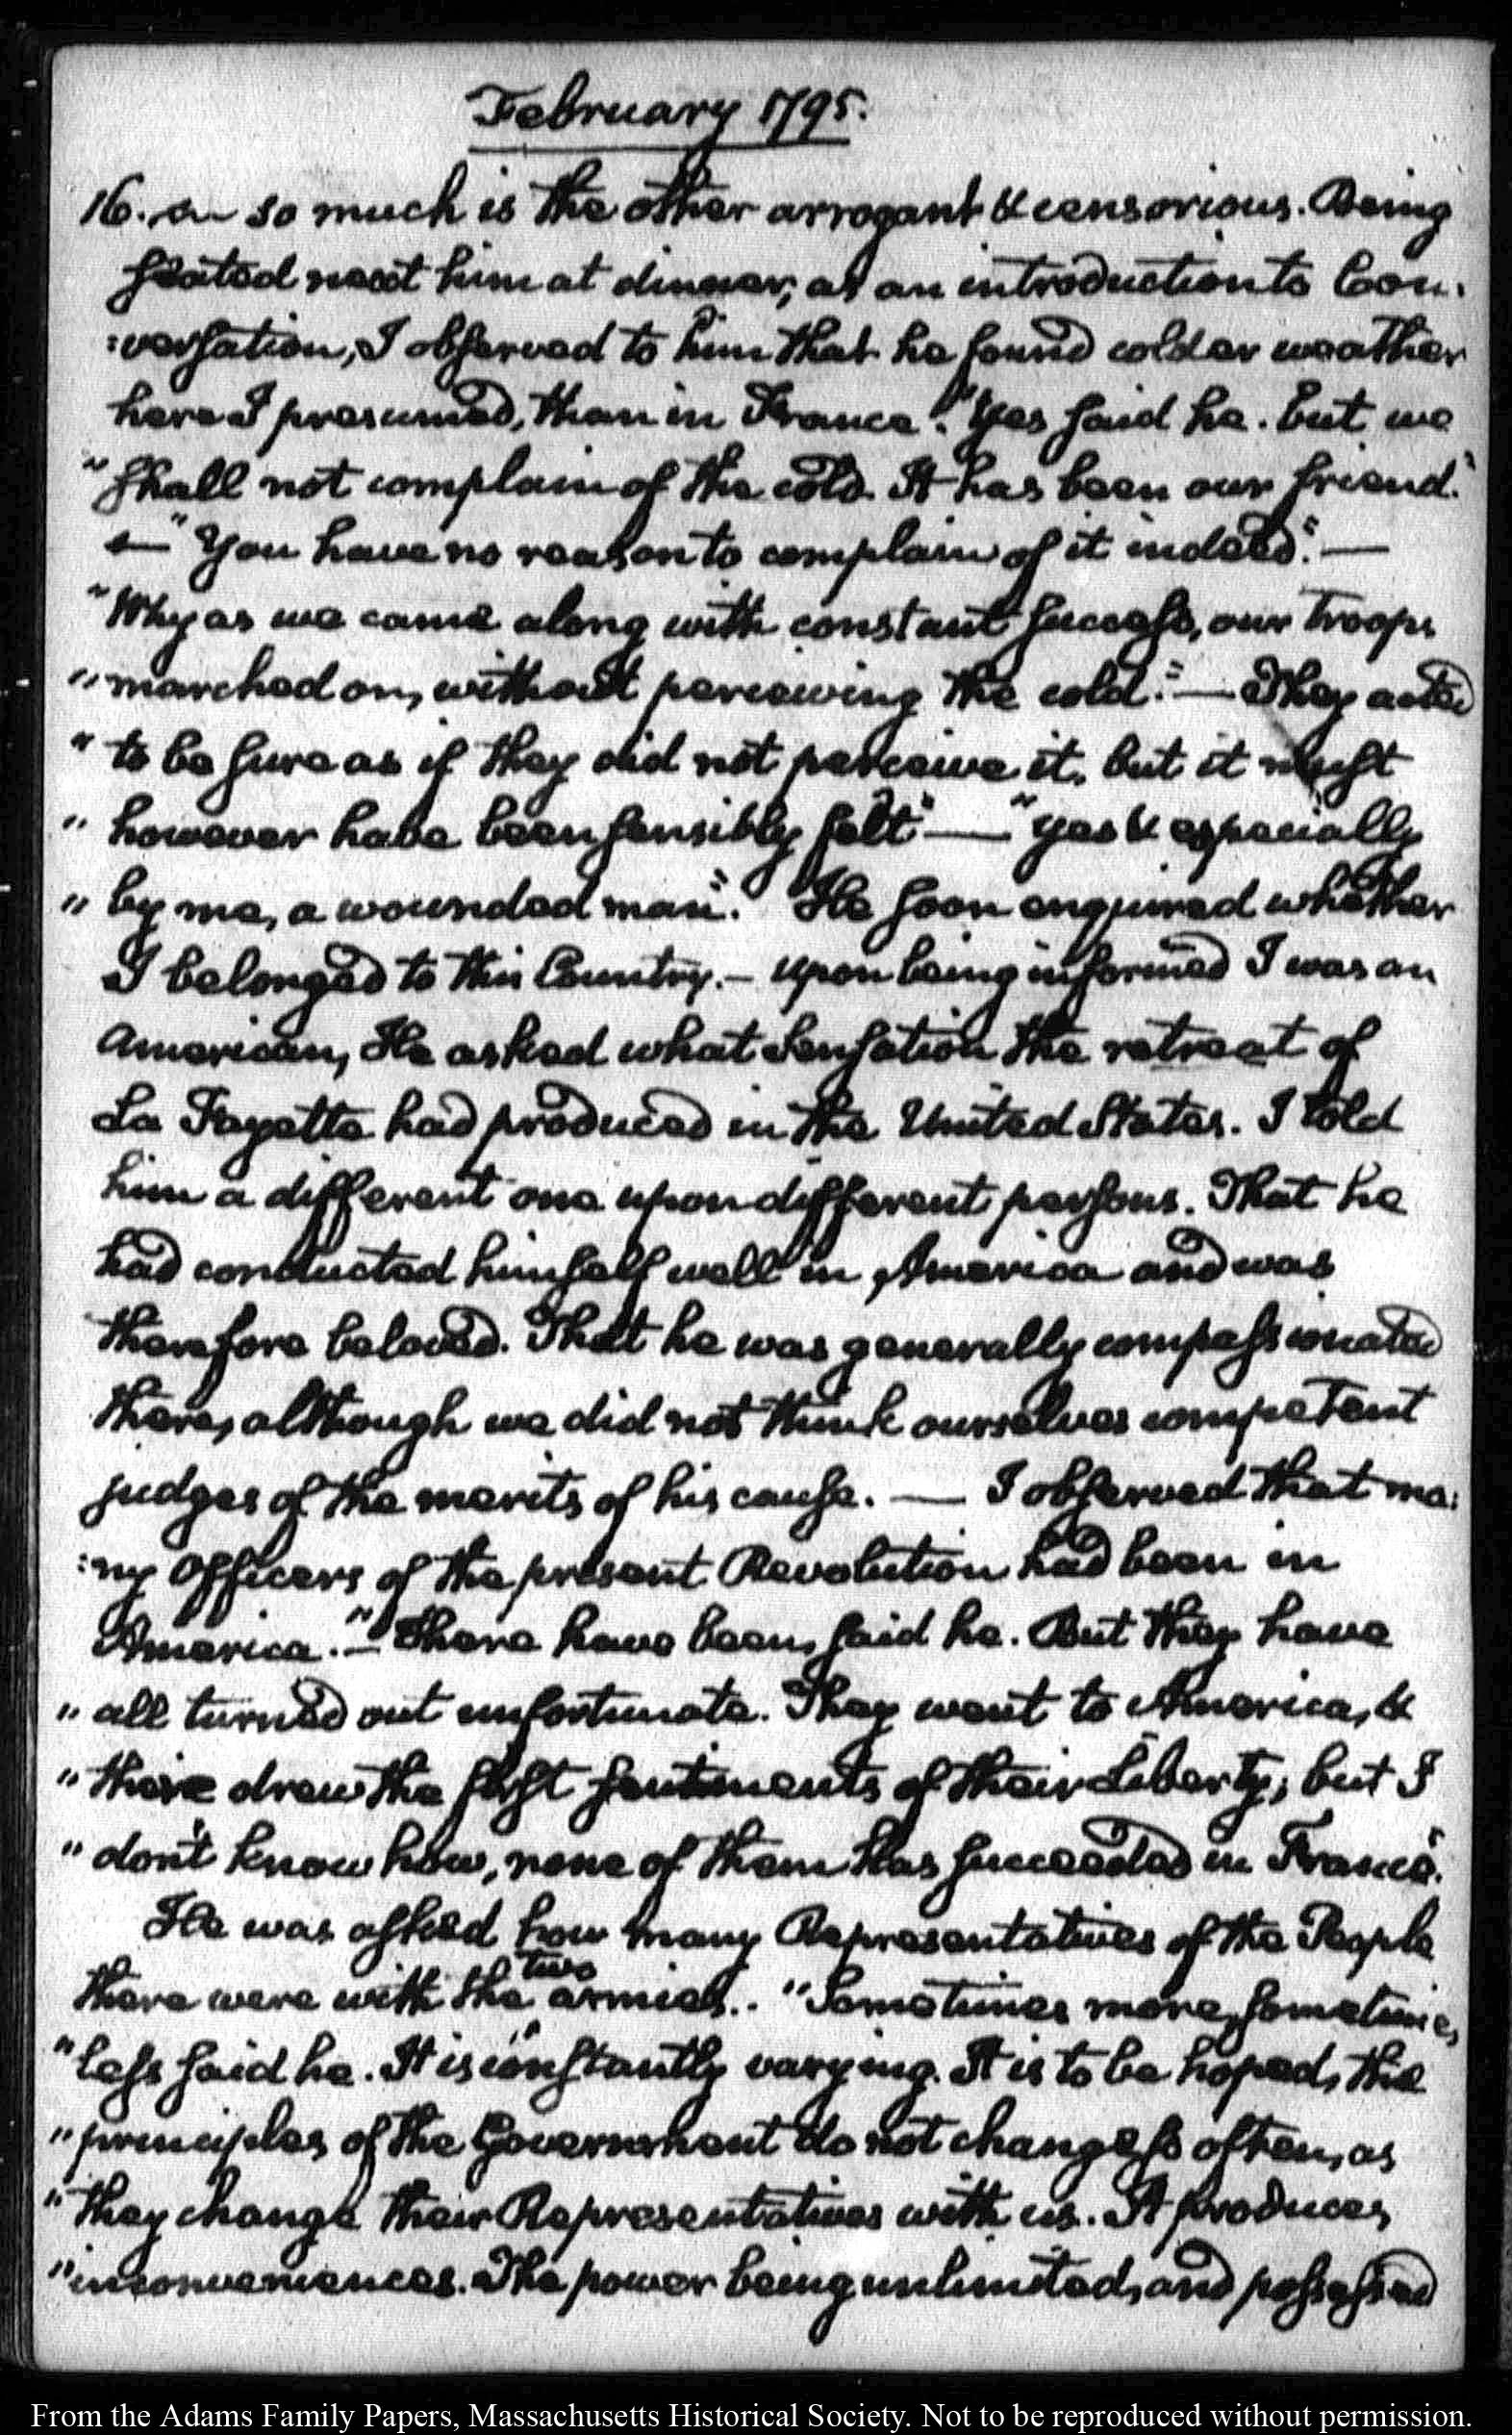 February 1795.
16. so much is the other arrogant & censorious. Being
seated next him at dinner, as an introduction to Con-
:versation, I observed to him that he found colder weather
here I presumed, than in France. "Yes said he. but we
"shall not complain of the cold. It has been our friend."
— "You have no reason to complain of it indeed." —
"Why as we came along with constant success, our troops
"marched on, without perceiving the cold." — They acted
"to be sure as if they did not perceive it, but it must
"however have been sensibly felt" — "Yes & especially
"by me, a wounded man". He soon enquired whether
I belonged to this Country. — Upon being informed I was an
American, He asked what Sensation the retreat of
La Fayette had produced in the United States. I told
him a different one upon different persons. That he
had conducted himself well in America and was
therefore beloved. That he was generally compassionated
there, although we did not think ourselves competent
judges of the merits of his cause. — I observed that ma:
:ny Officers of the present Revolution had been in
America. — "There have been, said he. But they have
"all turned out unfortunate. They went to America, &
"there drew the first sentiments of their Liberty; but I
"don't know how, none of them has succeeded in France."
He was asked how many Representatives of the People
there were with the two armies.. "Sometimes more, sometimes
"less said he. It is "constantly varying. It is to be hoped, the
"principles of the Government do not change so often, as
"they change their Representatives with us. It produces
"inconveniences. The power being unlimited, and possessed
From the Adams Family Papers, Massachusetts Historical Society. Not to be reproduced without permission.